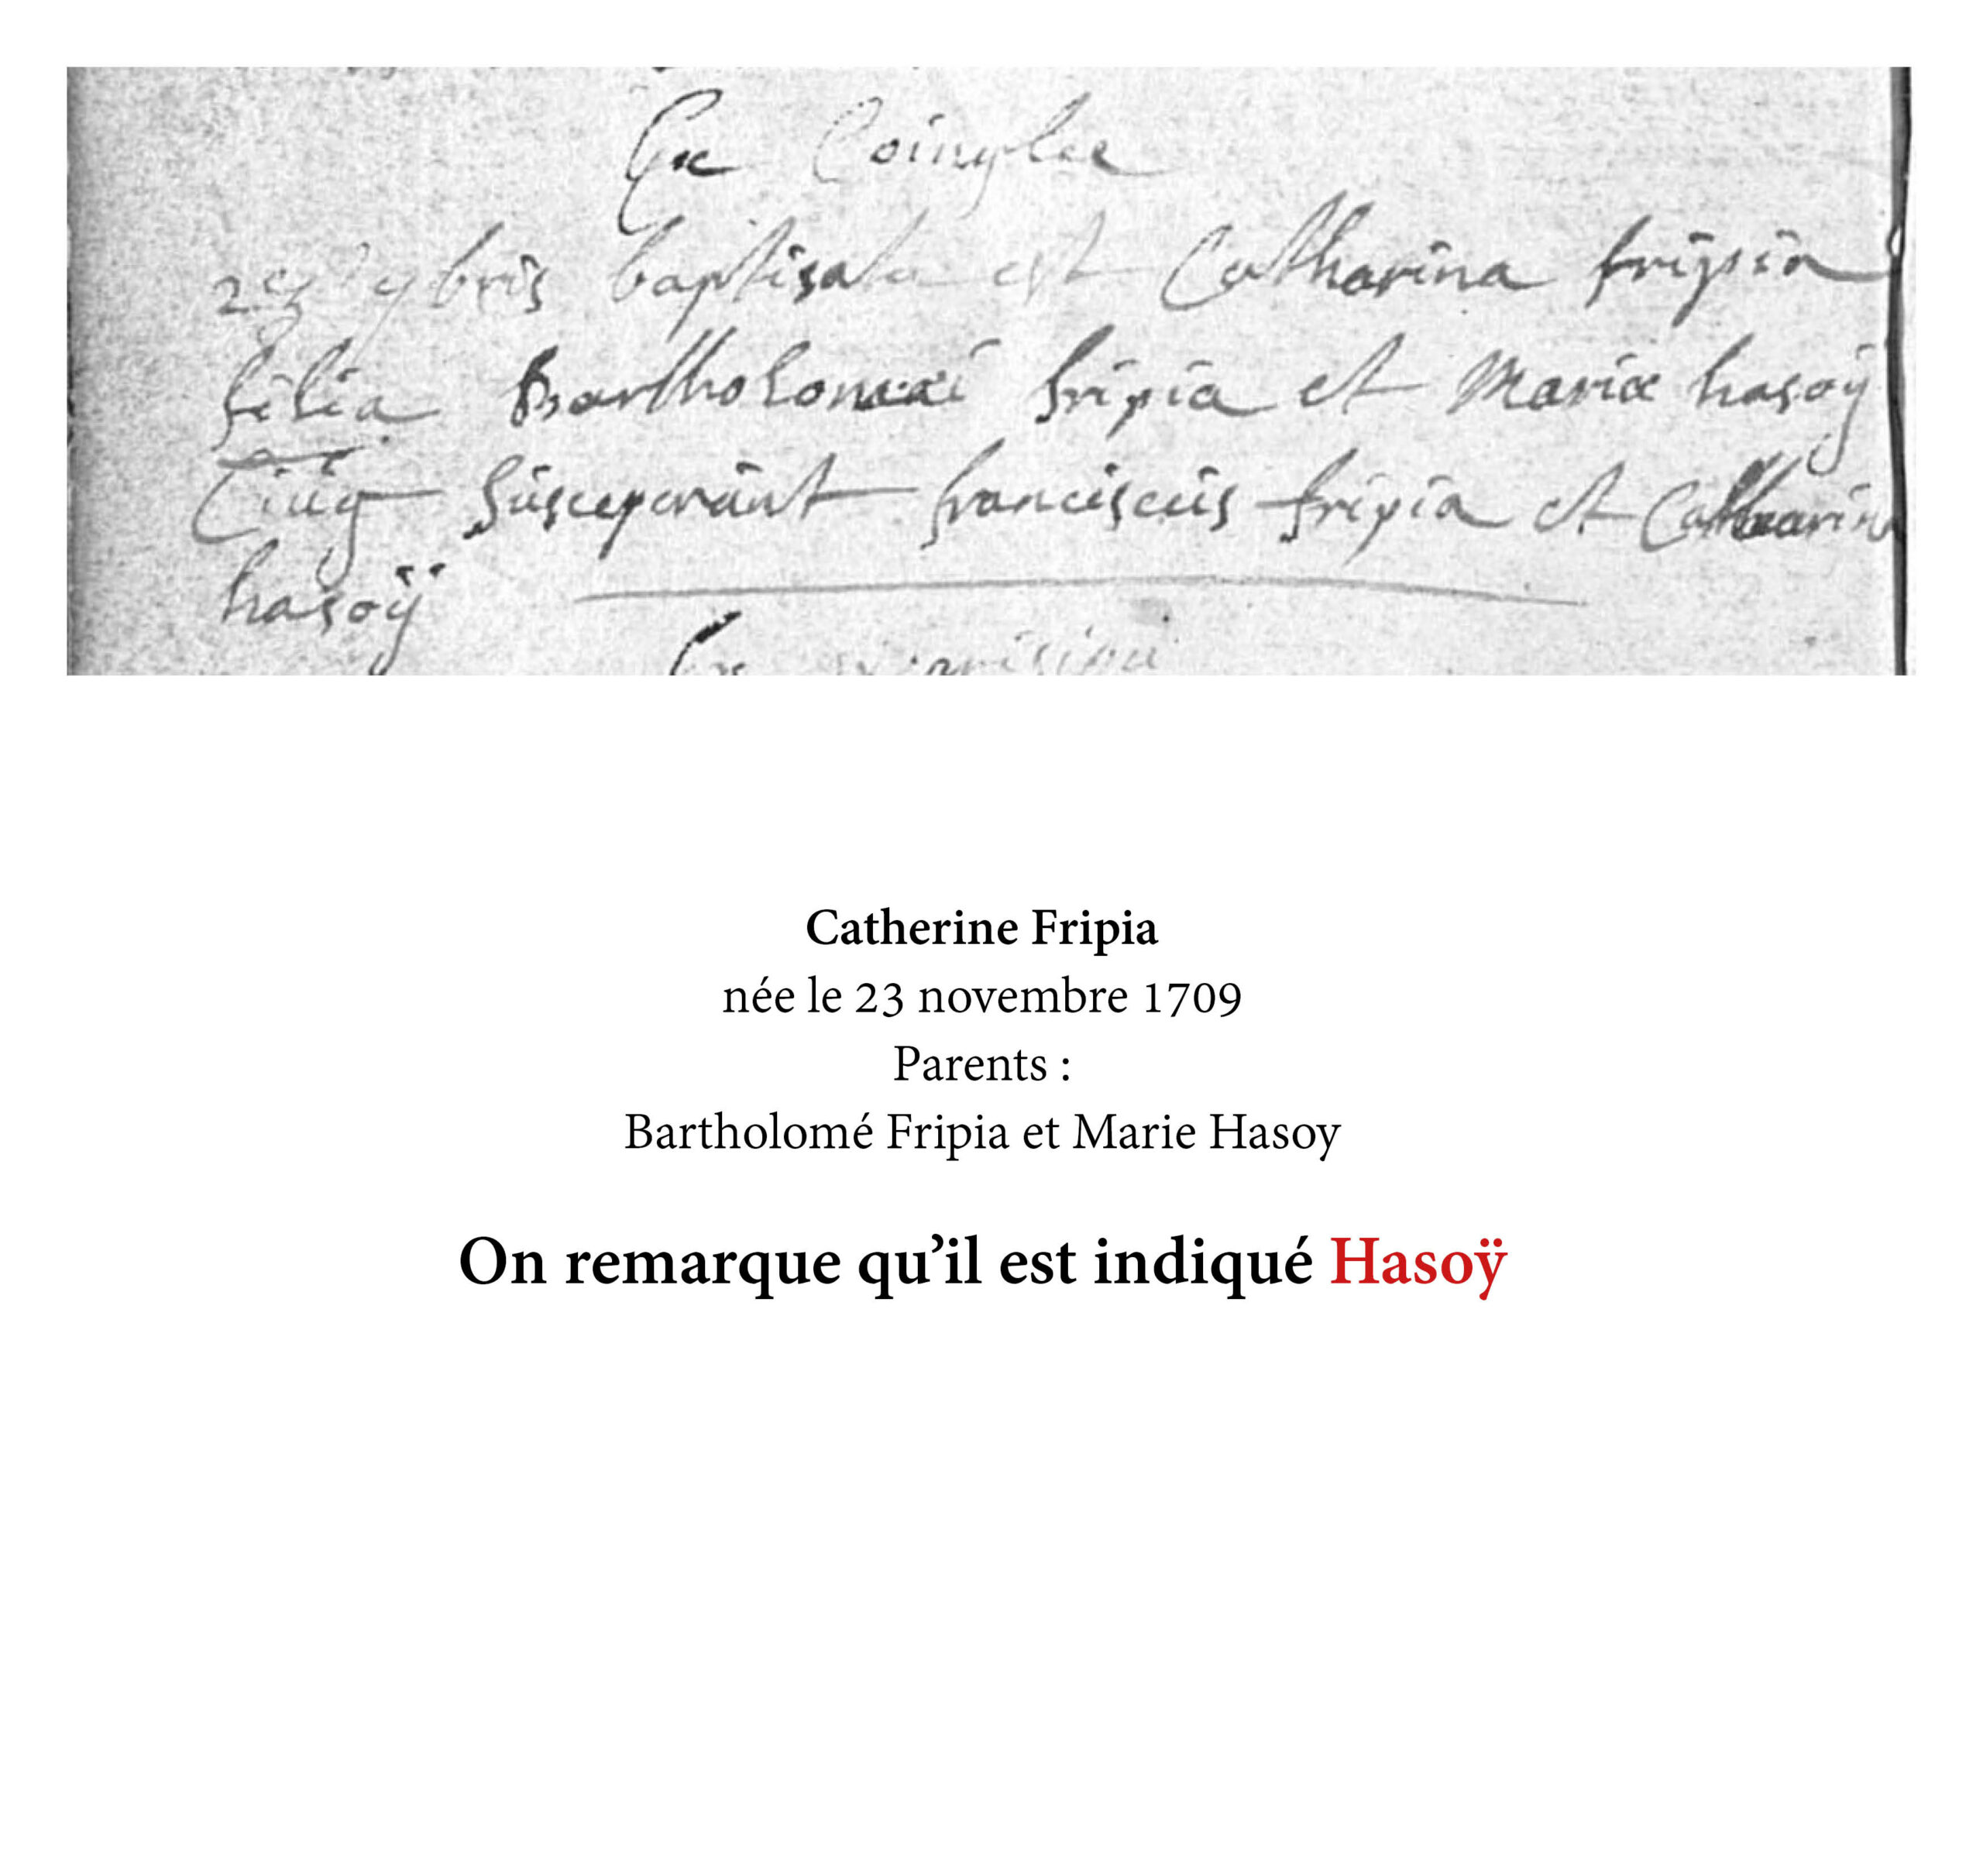 Ex Coinglee
9bris baptisata est Catharina fripia
filia Bartholomaei fripia et Mariæ hasoÿ
Coniug Susceperunt franciscus fripia et Catharina
hasoÿ
Ex
Catherine Fripia
née le 23 novembre 1709
Parents :
Bartholomé Fripia et Marie Hasoy
On remarque qu’il est indiqué Hasoÿ